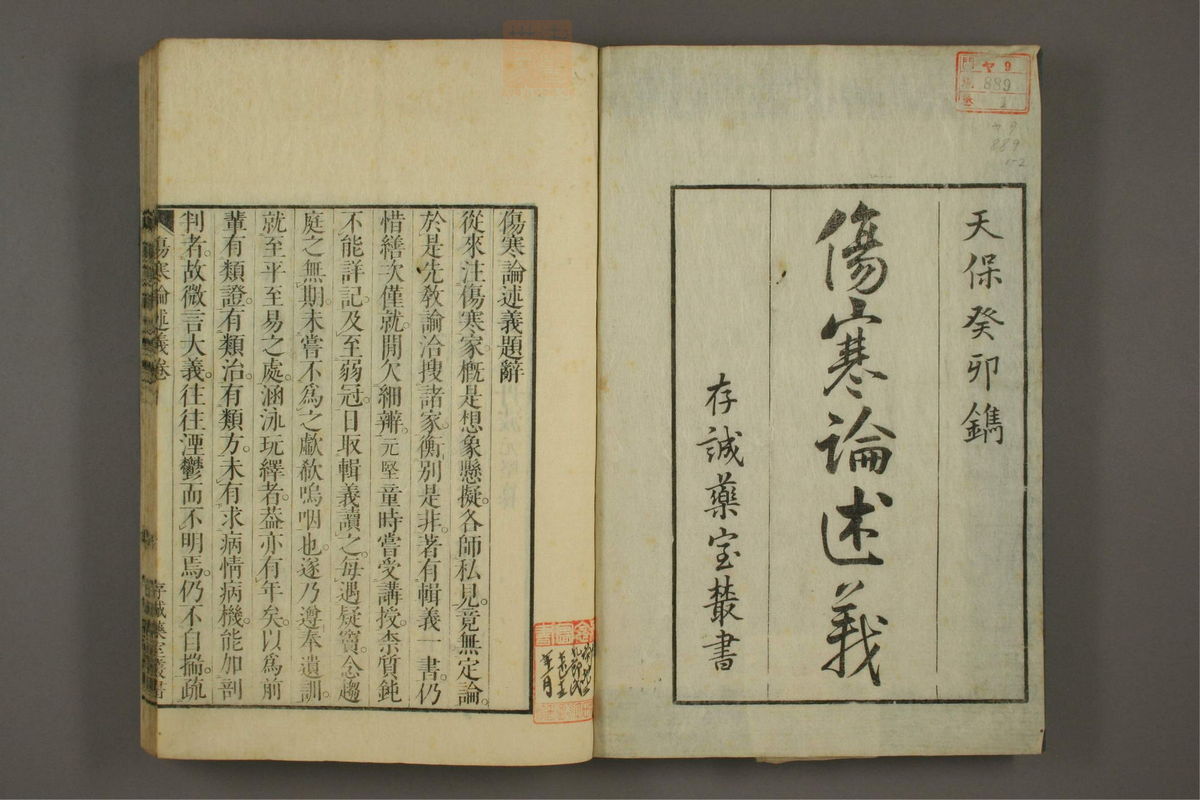 天保癸卯鐫
傷寒論述義
存誠藥室叢書
ヤ9
889
1
傷寒論述義題辭
從來注傷寒家。概是想象懸擬。各師私見。竟無定論。
於是先敎諭洽搜諸家。衡別是非。著有輯義一書。仍
惜繕次僅就。開欠細辨。元堅童時嘗受講授。柰質鈍
不能詳記。及至弱冠。日取輯義讀之。每遇疑竇。念趨
庭之無期。未嘗不爲之歔欷嗚咽也。遂乃遵奉遺訓。
就至平至易之處。涵泳玩繹者。葢亦有年矣。以爲前
輩有類證。有類治。有類方。未有求病情病機。能加剖
判者。故微言大義。往往湮鬱而不明焉。仍不自揣疏
傷寒論述義卷
存誠藥室叢書